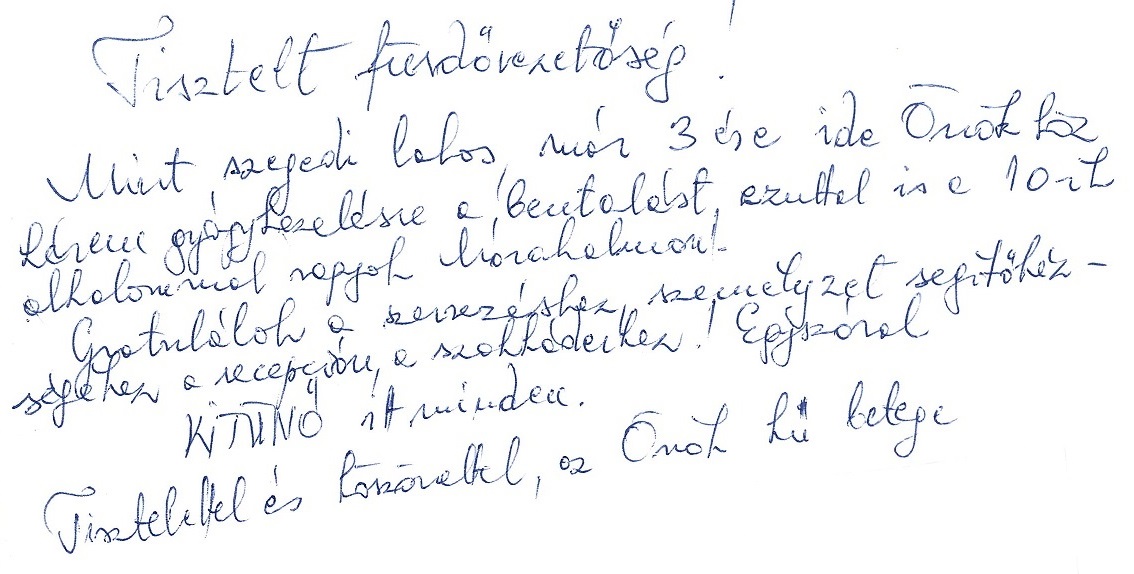 Tisztelt fürdővezetőség!
Mint szegedi lakos, már 3 éve ide Önökhöz
kérem gyógykezelésre a beutalást, ezuttal is a 10-ik
alkalommal vagyok Mórahalmon!
Gratulálok a szervezéshez, személyzet segitőkéz-
ségéhez a recepción, a szakkádeihez! Egyszóval
KITŰNŐ itt minden.
Tisztelettel és köszönettel, az Önök hű betege